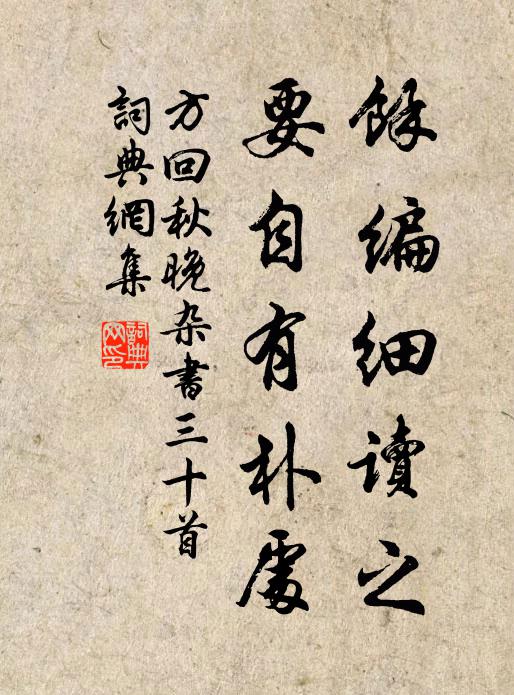 餘編細讀之
要自有朴處
方回秋晚杂書三十首
詞典網集
詞典網印